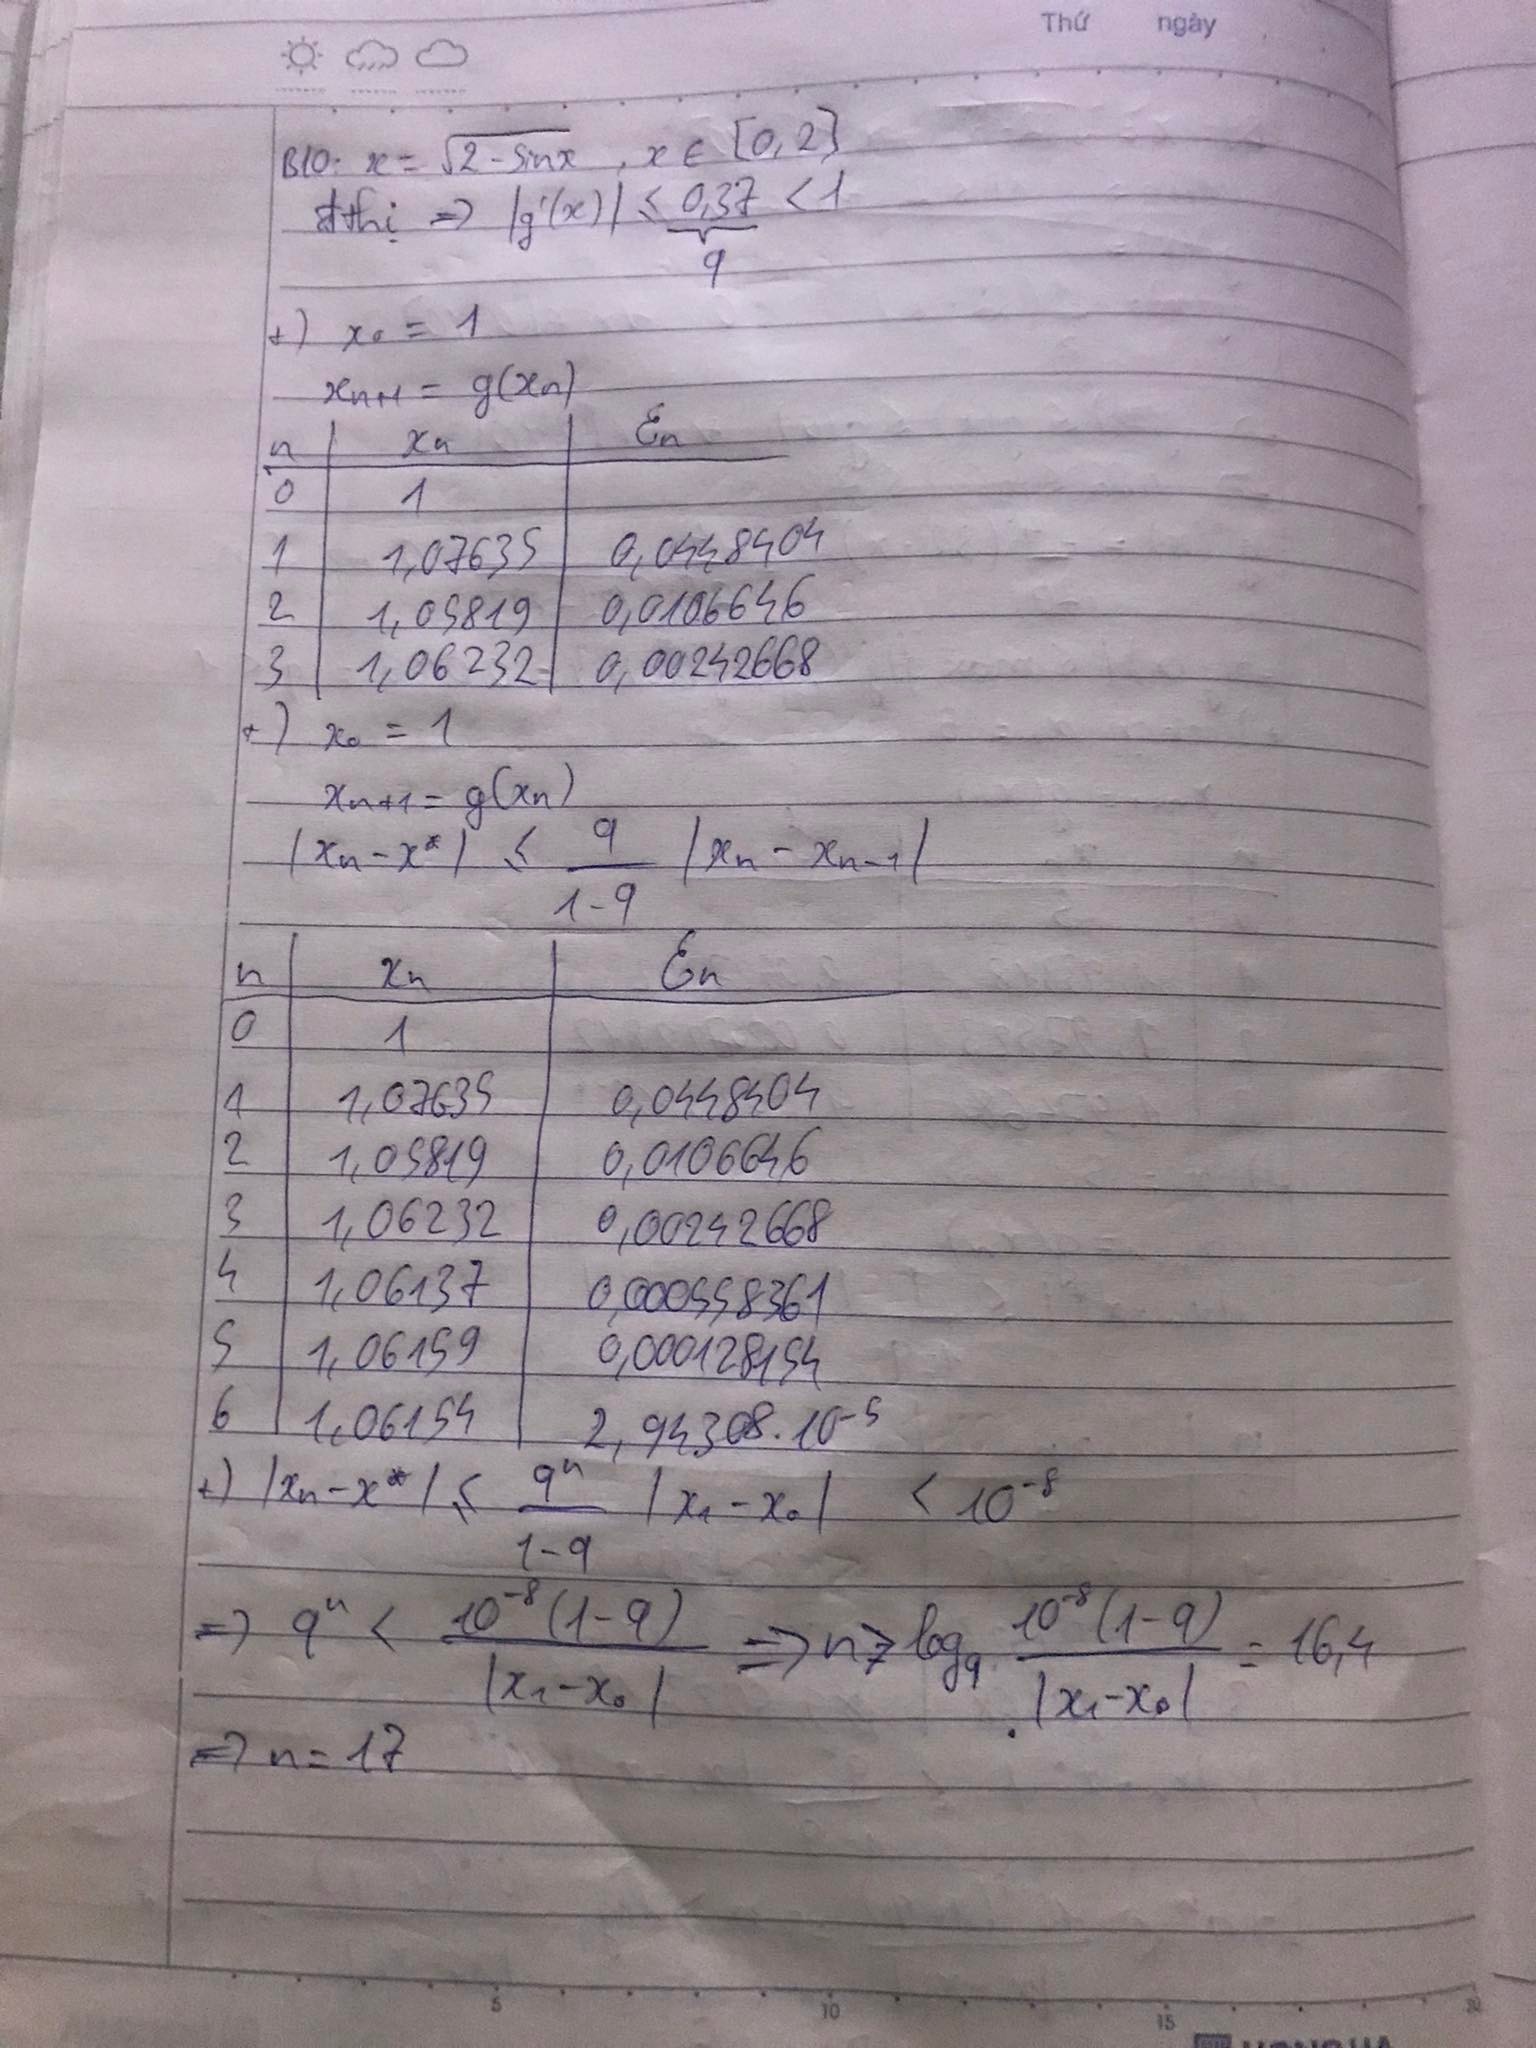 Thứ ngày
B10: x = √(2 - sinx) , x ∈ [0, 2]
đthị => |g'(x)| ≤ 0,37 < 1
q
+) x₀ = 1
xₙ₊₁ = g(xₙ)
n | xₙ | Ɛₙ
0 | 1 |
1 | 1,07635 | 0,0448404
2 | 1,05819 | 0,0106646
3 | 1,06232 | 0,00242668
+) x₀ = 1
xₙ₊₁ = g(xₙ)
|xₙ - x*| ≤ q/(1-q) |xₙ - xₙ₋₁|
n | xₙ | Ɛₙ
0 | 1 |
1 | 1,07635 | 0,0448404
2 | 1,05819 | 0,0106646
3 | 1,06232 | 0,00242668
4 | 1,06137 | 0,000558361
5 | 1,06159 | 0,000128154
6 | 1,06154 | 2,94308.10⁻⁵
+) |xₙ - x*| ≤ qⁿ/(1-q) |x₁ - x₀| < 10⁻⁸
=> qⁿ < 10⁻⁸(1-q)/|x₁-x₀| => n > log_q 10⁻⁸(1-q)/|x₁-x₀| = 16,4
=> n = 17
5 10 15 20